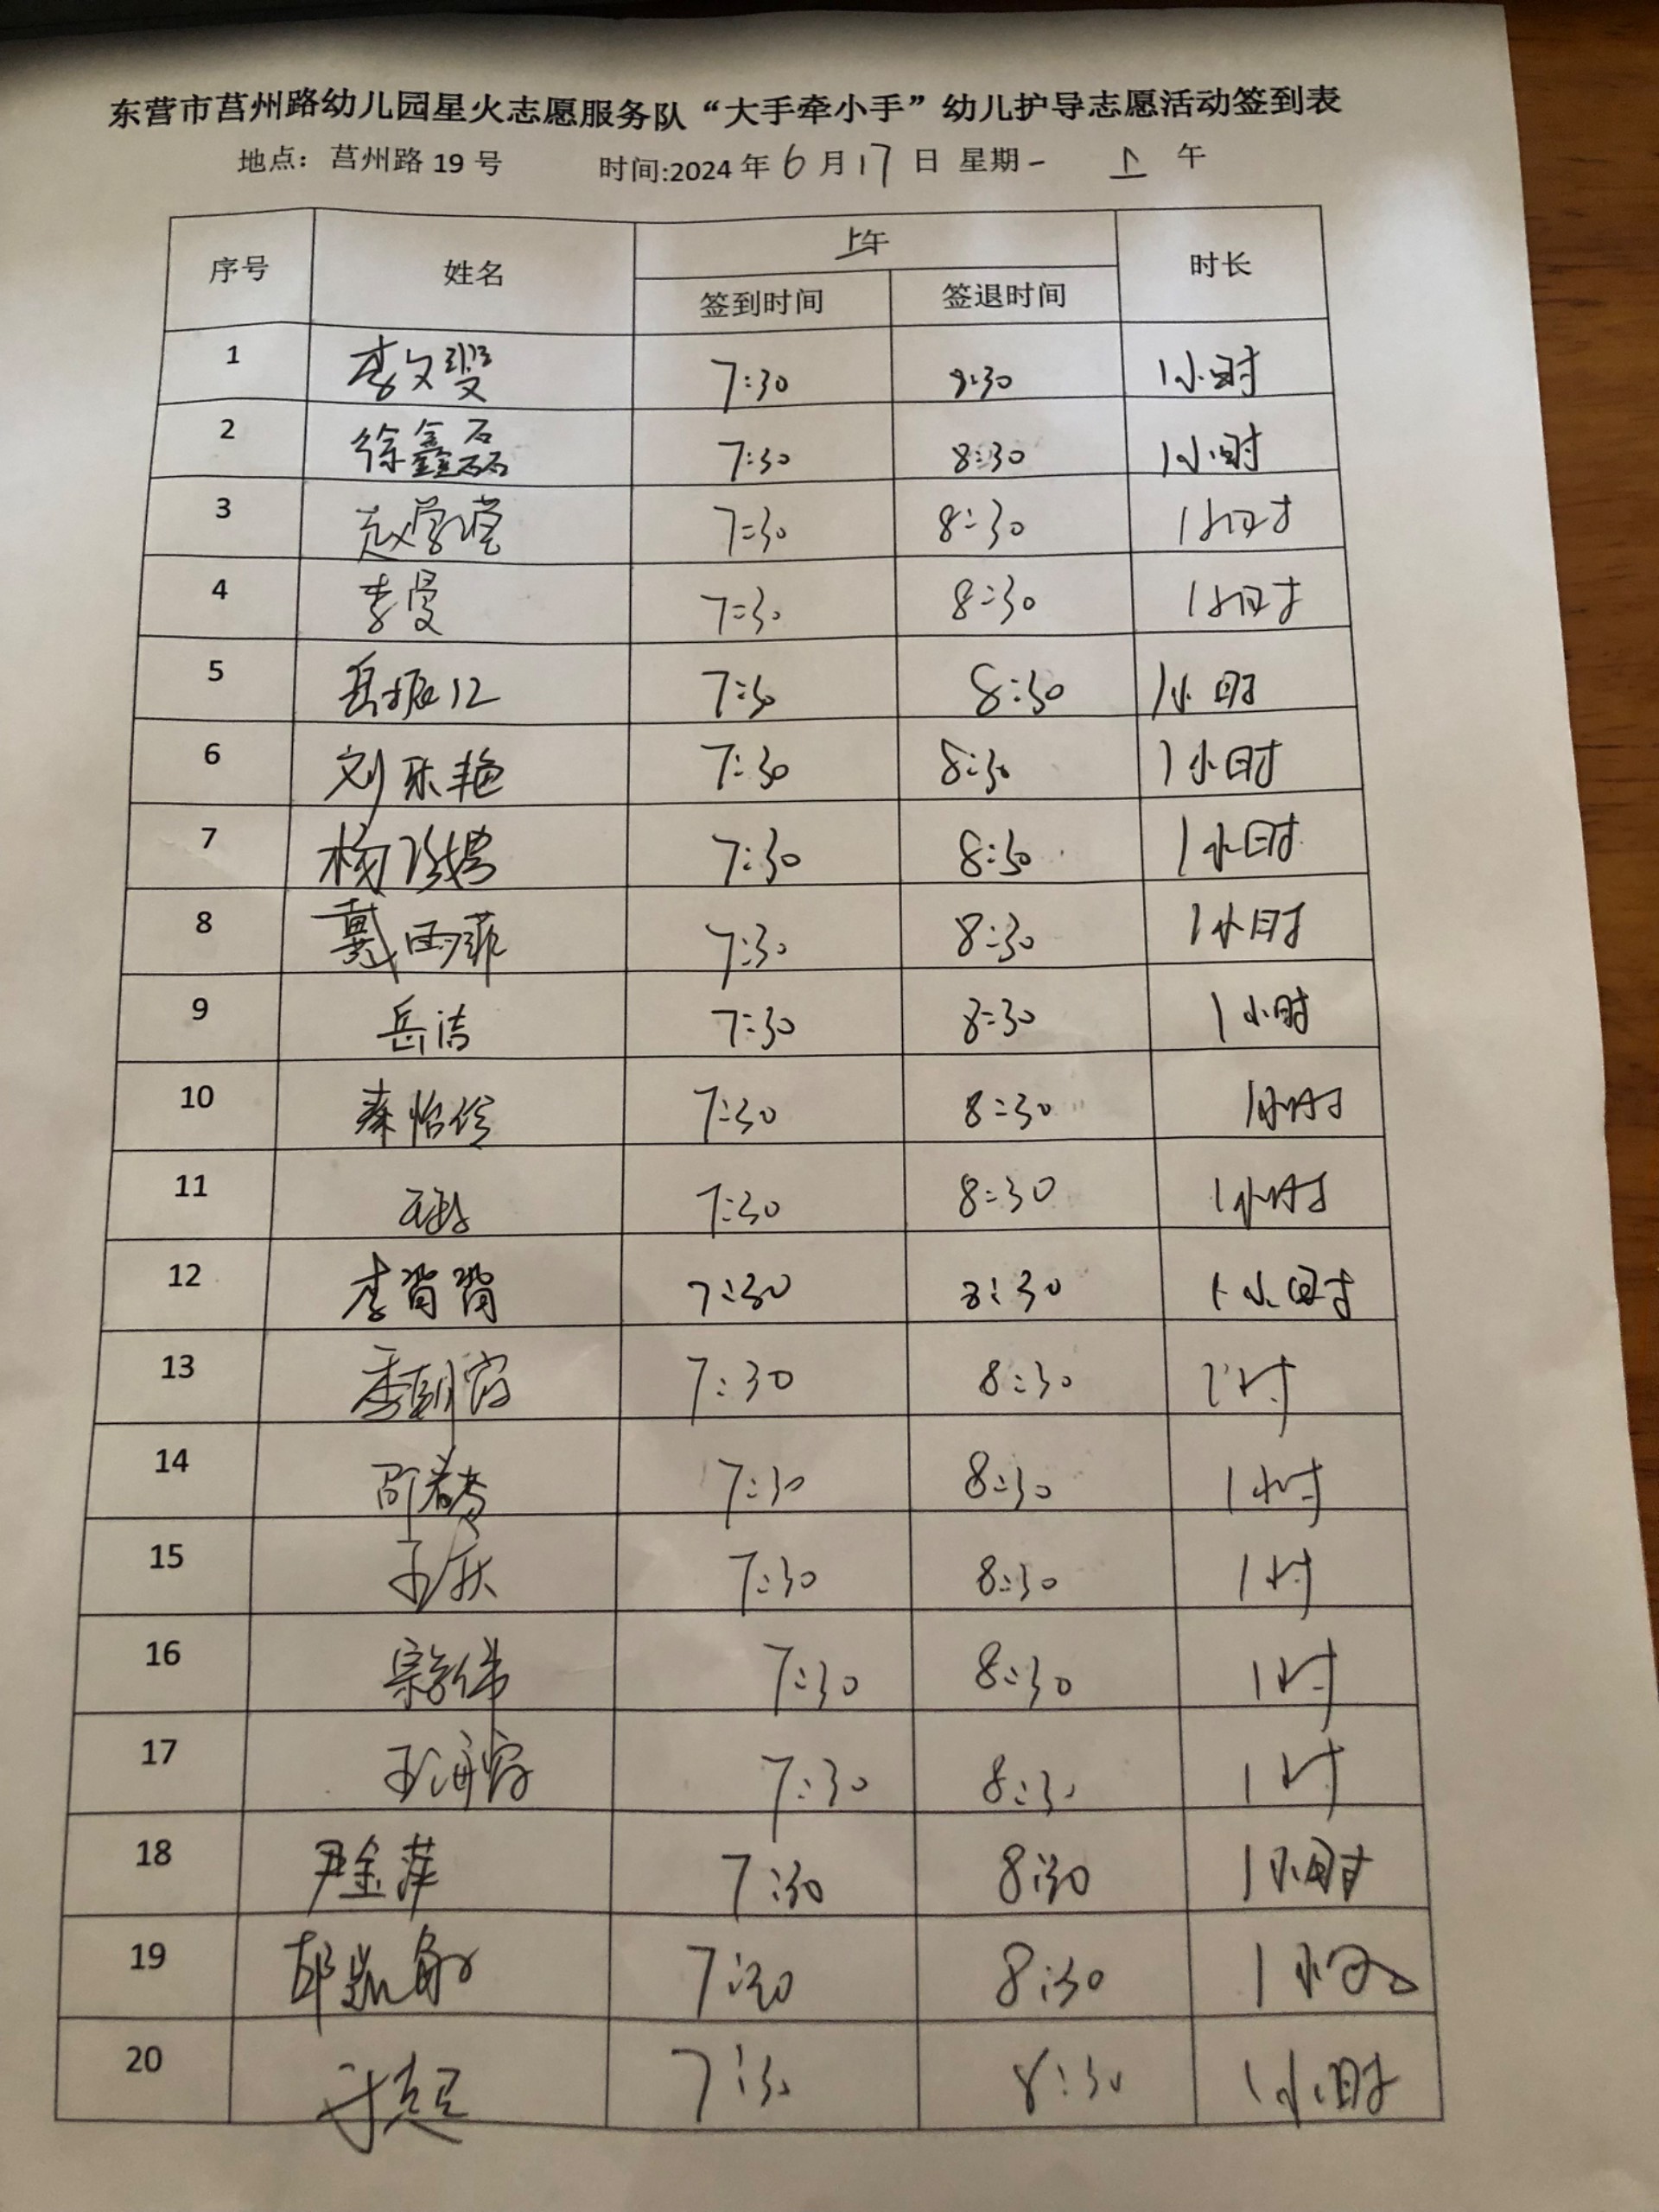 东营市莒州路幼儿园星火志愿服务队“大手牵小手”幼儿护导志愿活动签到表
地点：莒州路 19 号 时间:2024 年 6 月 17 日 星期一 上 午
序号 姓名 上午 时长
签到时间 签退时间
1 李文 7:30 8:30 1小时
2 徐鑫磊 7:30 8:30 1小时
3 赵学莹 7:30 8:30 1小时
4 李曼 7:30 8:30 1小时
5 岳振江 7:30 8:30 1小时
6 刘乐艳 7:30 8:30 1小时
7 杨 7:30 8:30 1小时
8 戴雨菲 7:30 8:30 1小时
9 岳洁 7:30 8:30 1小时
10 秦怡 7:30 8:30 1小时
11 7:30 8:30 1小时
12 李肖肖 7:30 8:30 1小时
13 季朝霞 7:30 8:30 1小时
14 7:30 8:30 1小时
15 7:30 8:30 1小时
16 宗 7:30 8:30 1时
17 王海霞 7:30 8:30 1时
18 尹金萍 7:30 8:30 1小时
19 7:30 8:30 1小时
20 7:30 8:30 1小时